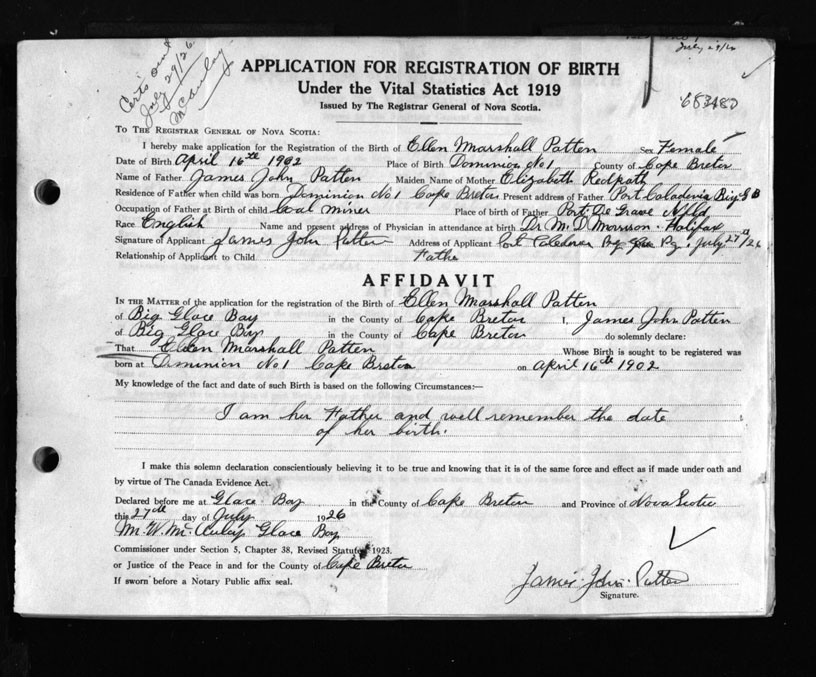 Certs sent
July 29/26
McAulay
July 29/26
683480
APPLICATION FOR REGISTRATION OF BIRTH
Under the Vital Statistics Act 1919
Issued by The Registrar General of Nova Scotia.
To The Registrar General of Nova Scotia:
I hereby make application for the Registration of the Birth of Ellen Marshall Patten Sex Female
Date of Birth April 16th 1902 Place of Birth Dominion No 1 County of Cape Breton
Name of Father James John Patten Maiden Name of Mother Elizabeth Redpath
Residence of Father when child was born Dominion No 1 Cape Breton Present address of Father Port Caledonia Big G B
Occupation of Father at Birth of child Coal Miner Place of birth of Father Port De Grave Nfld
Race English Name and present address of Physician in attendance at birth Dr M. D. Morrison Halifax
Signature of Applicant James John Patten Address of Applicant Port Caledonia July 27th/26
Relationship of Applicant to Child Father
AFFIDAVIT
In the Matter of the application for the registration of the Birth of Ellen Marshall Patten
of Big Glace Bay in the County of Cape Breton I, James John Patten
of Big Glace Bay in the County of Cape Breton do solemnly declare:
That Ellen Marshall Patten Whose Birth is sought to be registered was
born at Dominion No 1 Cape Breton on April 16th 1902
My knowledge of the fact and date of such Birth is based on the following Circumstances:—
I am her Father and well remember the date
of her birth.
I make this solemn declaration conscientiously believing it to be true and knowing that it is of the same force and effect as if made under oath and
by virtue of The Canada Evidence Act.
Declared before me at Glace Bay in the County of Cape Breton and Province of Nova Scotia
this 27th day of July 1926
M. W. McAulay Glace Bay
Commissioner under Section 5, Chapter 38, Revised Statutes 1923.
or Justice of the Peace in and for the County of Cape Breton
If sworn before a Notary Public affix seal.
James John Patten
Signature.